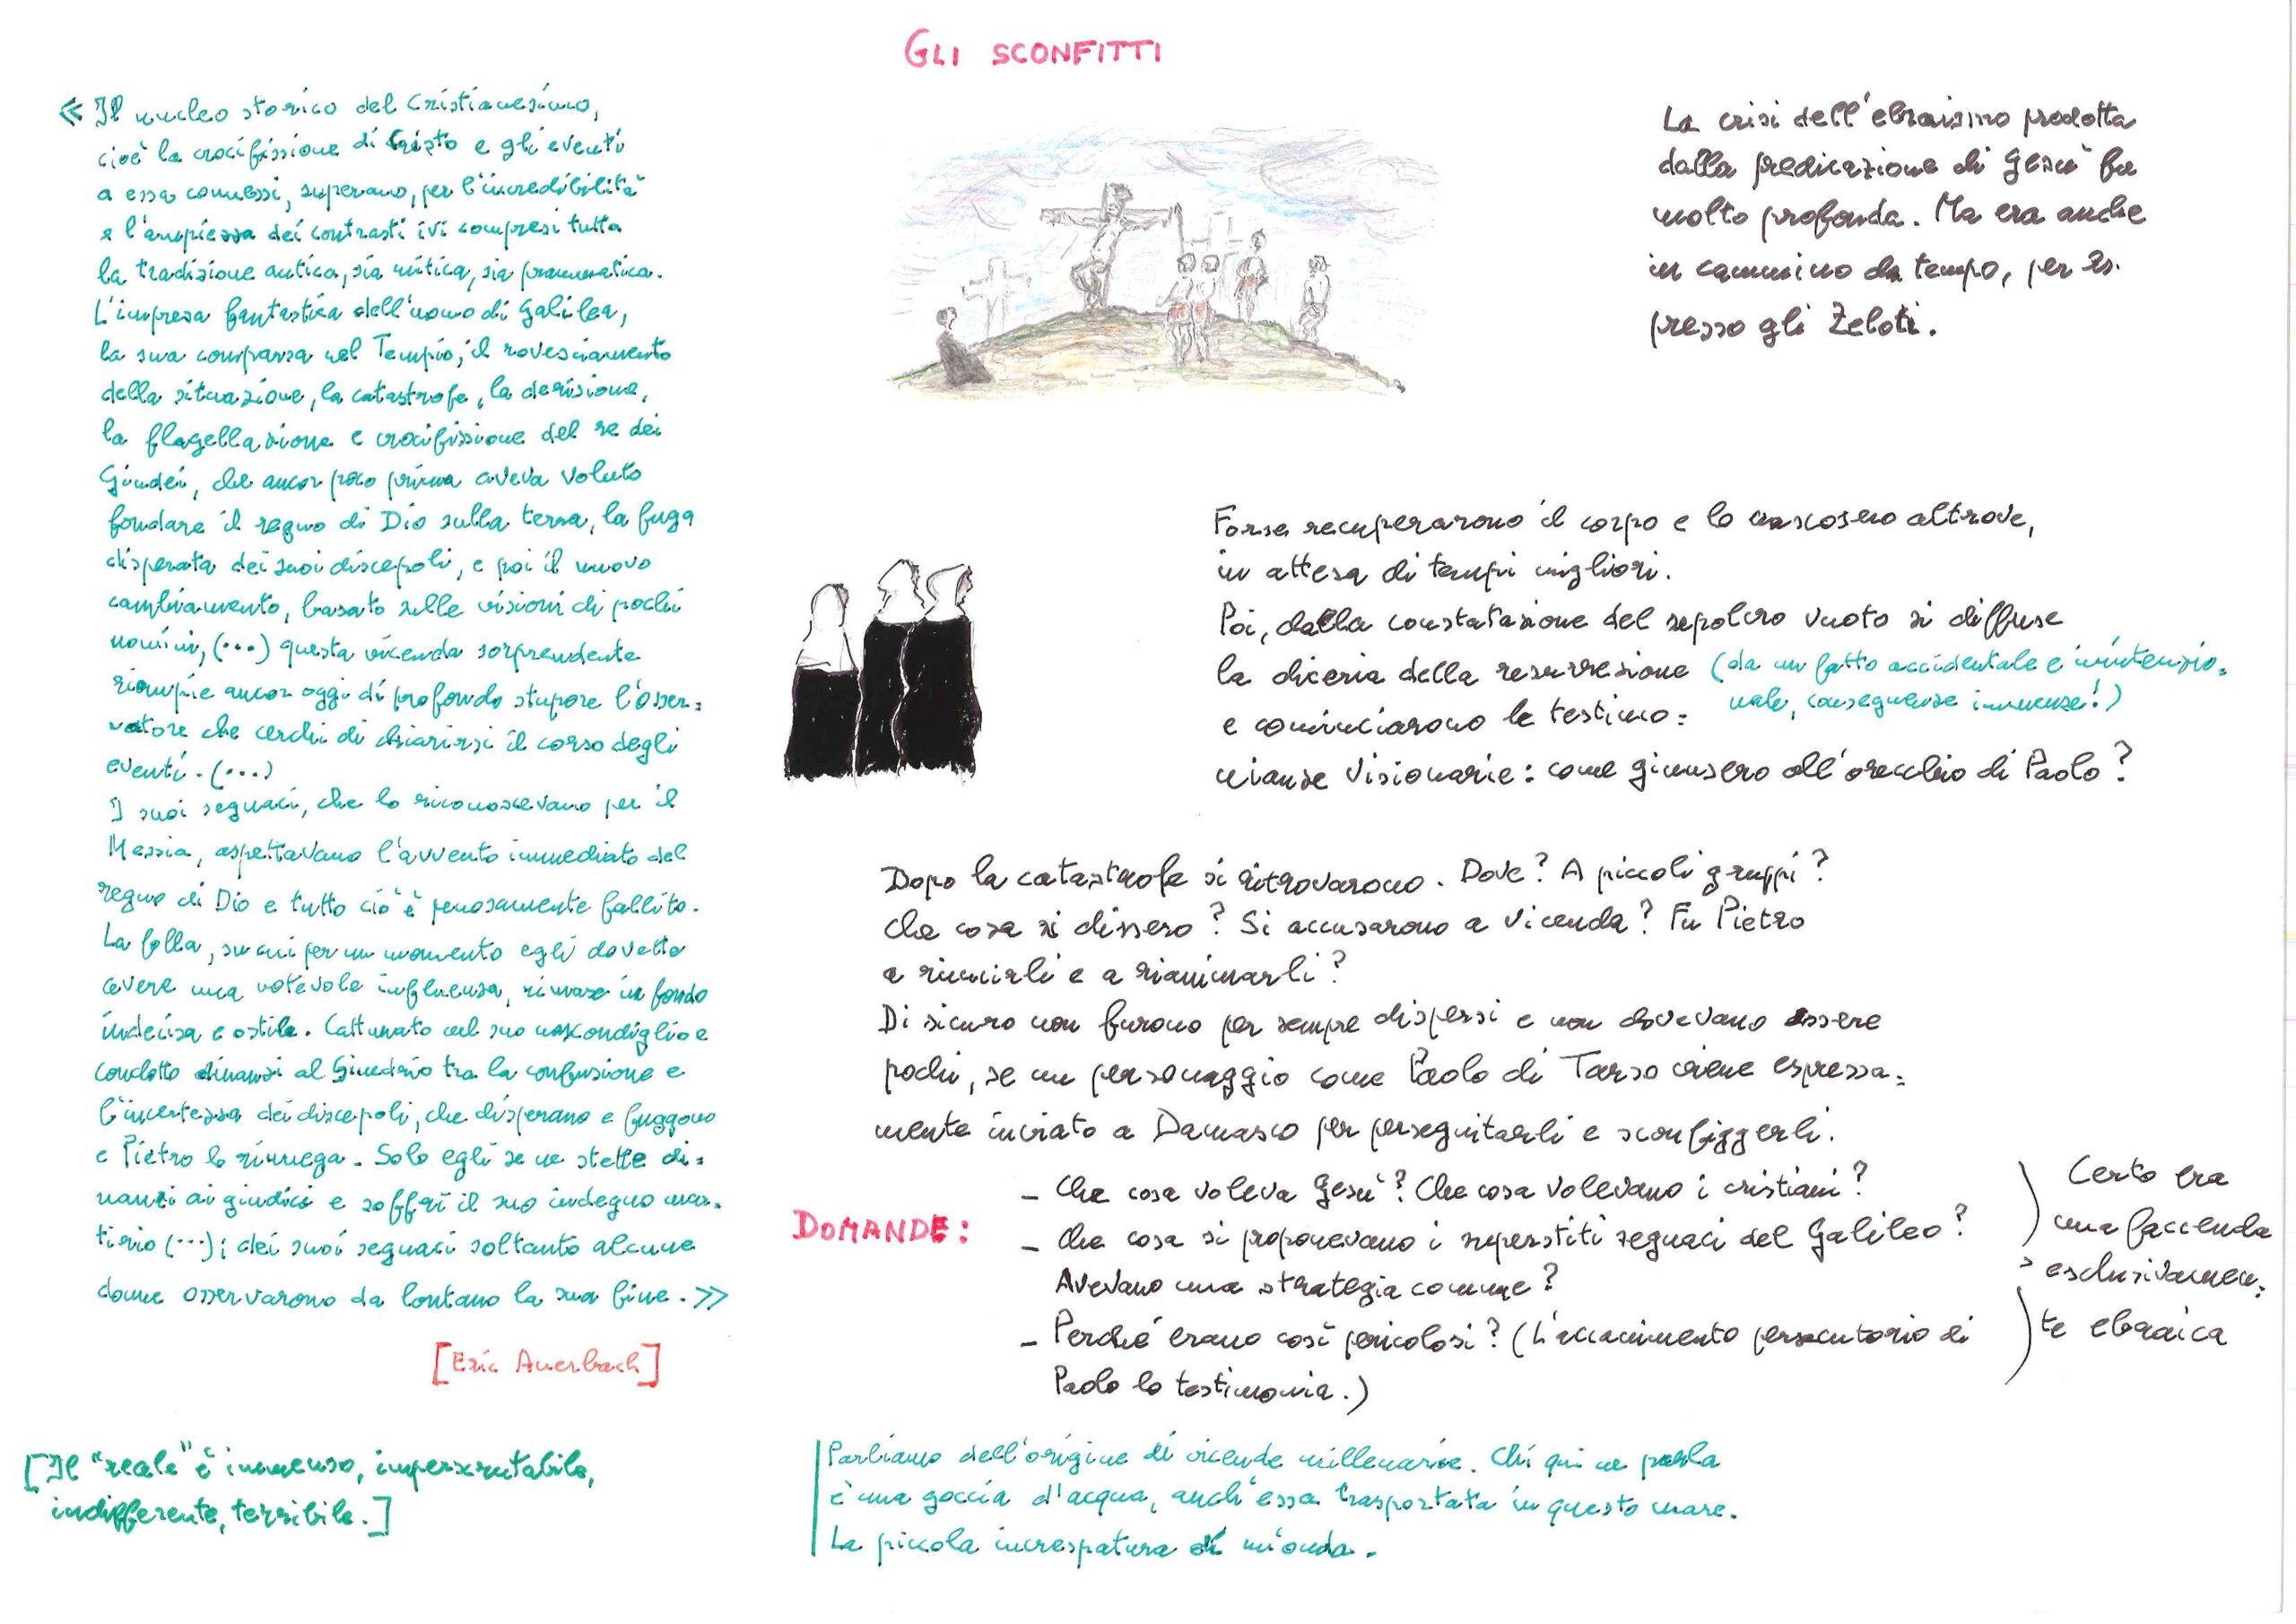 GLI SCONFITTI
« Il nucleo storico del Cristianesimo,
cioè la crocifissione di Cristo e gli eventi
a essa connessi, superano, per l'incredibilità
e l'ampiezza dei contrasti ivi compresi tutta
la tradizione antica, sia mitica, sia prammatica.
L'impresa fantastica dell'uomo di Galilea,
la sua comparsa nel Tempio, il rovesciamento
della situazione, la catastrofe, la derisione,
la flagellazione e crocifissione del re dei
Giudei, che ancor poco prima aveva voluto
fondare il regno di Dio sulla terra, la fuga
disperata dei suoi discepoli, e poi il nuovo
cambiamento, basato sulle visioni di pochi
uomini, (...) questa vicenda sorprendente
riempie ancor oggi di profondo stupore l'osser=
vatore che cerchi di chiarirsi il corso degli
eventi. (...)
I suoi seguaci, che lo riconoscevano per il
Messia, aspettavano l'avvento immediato del
regno di Dio e tutto ciò è penosamente fallito.
La folla, su cui per un momento egli dovette
avere una notevole influenza, rimase in fondo
indecisa e ostile. Catturato nel suo nascondiglio e
condotto dinanzi al Sinedrio tra la confusione e
l'incertezza dei discepoli, che disperano e fuggono
e Pietro lo rinnega. Solo egli se ne stette di=
nanzi ai giudici e soffrì il suo indegno mar=
tirio (...); dei suoi seguaci soltanto alcune
donne osservarono da lontano la sua fine. »
[Eric Auerbach]
[Il "reale" è immenso, imperscrutabile,
indifferente, terribile.]
La crisi dell'ebraismo prodotta
dalla predicazione di Gesù fu
molto profonda. Ma era anche
in cammino da tempo, per es.
presso gli Zeloti.
Forse recuperarono il corpo e lo nascosero altrove,
in attesa di tempi migliori.
Poi, dalla constatazione del sepolcro vuoto si diffuse
la diceria della resurrezione (da un fatto accidentale e inintenzio=
nale, conseguenze immense!)
e cominciarono le testimo=
nianze visionarie: come giunsero all'orecchio di Paolo?
Dopo la catastrofe si ritrovarono. Dove? A piccoli gruppi?
Che cosa si dissero? Si accusarono a vicenda? Fu Pietro
a riunirli e a rianimarli?
Di sicuro non furono per sempre dispersi e non dovevano essere
pochi, se un personaggio come Paolo di Tarso viene espressa=
mente inviato a Damasco per perseguitarli e sconfiggerli.
DOMANDE:
- Che cosa voleva Gesù? Che cosa volevano i cristiani?
- Che cosa si proponevano i superstiti seguaci del Galileo?
Avevano una strategia comune?
- Perché erano così pericolosi? (L'accanimento persecutorio di
Paolo lo testimonia.)
Certo era
una faccenda
esclusivamen=
te ebraica
Parliamo dell'origine di vicende millenarie. Chi qui ne parla
è una goccia d'acqua, anch'essa trasportata in questo mare.
La piccola increspatura di un'onda.